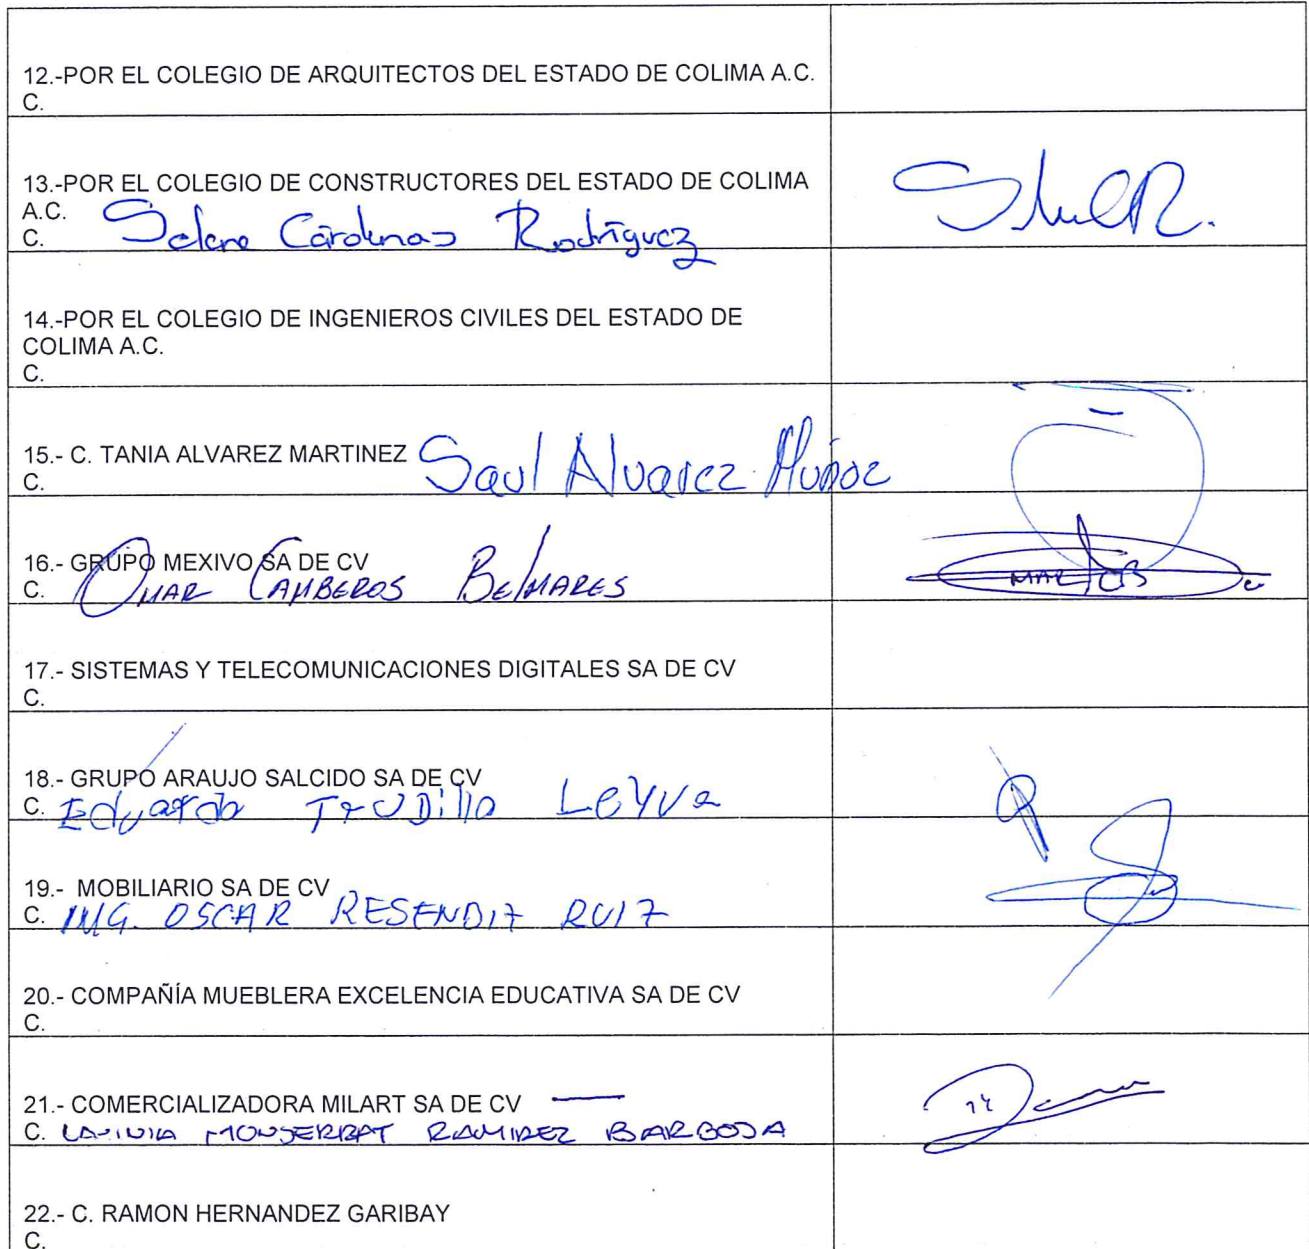 12.-POR EL COLEGIO DE ARQUITECTOS DEL ESTADO DE COLIMA A.C.
C.
13.-POR EL COLEGIO DE CONSTRUCTORES DEL ESTADO DE COLIMA
A.C.
C. Selene Cárdenas Rodríguez
14.-POR EL COLEGIO DE INGENIEROS CIVILES DEL ESTADO DE
COLIMA A.C.
C.
15.- C. TANIA ALVAREZ MARTINEZ Saul Alvarez Muñoz
C.
16.- GRUPO MEXIVO SA DE CV
C. OMAR CAMBEROS BELMARES
17.- SISTEMAS Y TELECOMUNICACIONES DIGITALES SA DE CV
C.
18.- GRUPO ARAUJO SALCIDO SA DE CV
C. Eduardo TruJillo LeYva
19.- MOBILIARIO SA DE CV
C. ING. OSCAR RESENDIZ RUIZ
20.- COMPAÑÍA MUEBLERA EXCELENCIA EDUCATIVA SA DE CV
C.
21.- COMERCIALIZADORA MILART SA DE CV
C. MONSERRAT RAMIREZ BARBOSA
22.- C. RAMON HERNANDEZ GARIBAY
C.